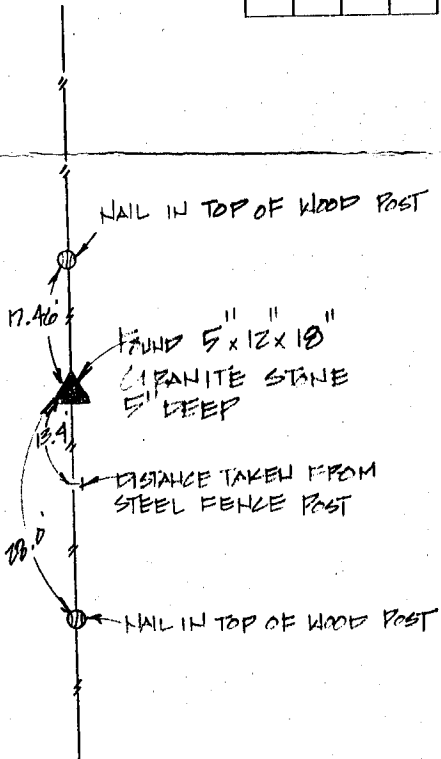 NAIL IN TOP OF WOOD POST
17.46'
FOUND 5" x 12" x 18"
GRANITE STONE
5" DEEP
13.4'
DISTANCE TAKEN FROM
STEEL FENCE POST
NAIL IN TOP OF WOOD POST